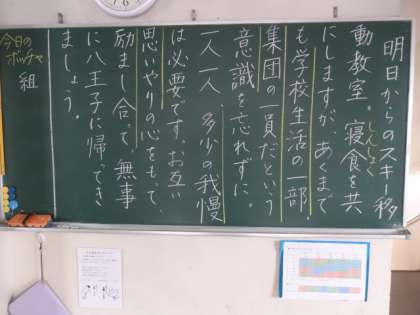 明日からのスキー移
動教室。寝食を共
しんしょく
にしますが、あくまで
も学校生活の一部。
集団の一員だという
意識を忘れずに。
一人一人、多少の我慢
は必要です。お互い
思いやりの心をもって、
励まし合って、無事
に八王子に帰ってき
ましょう。
今日の
ボッチャ
組